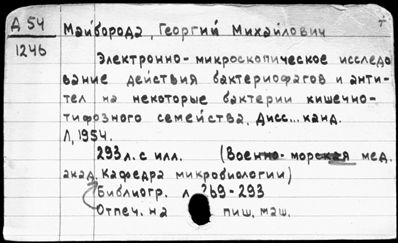 Д 54
1246
т
Майборода, Георгий Михайлович
Электронно-микроскопическое исследо
вание действия бактериофагов и анти-
тел на некоторые бактерии кишечно-
тифозного семейства. Дисс... канд.
Л, 1954.
293 л. с илл. (Военно-морская мед.
акад. Кафедра микробиологии)
Библиогр. л 269-293
Отпеч. на пиш. маш.